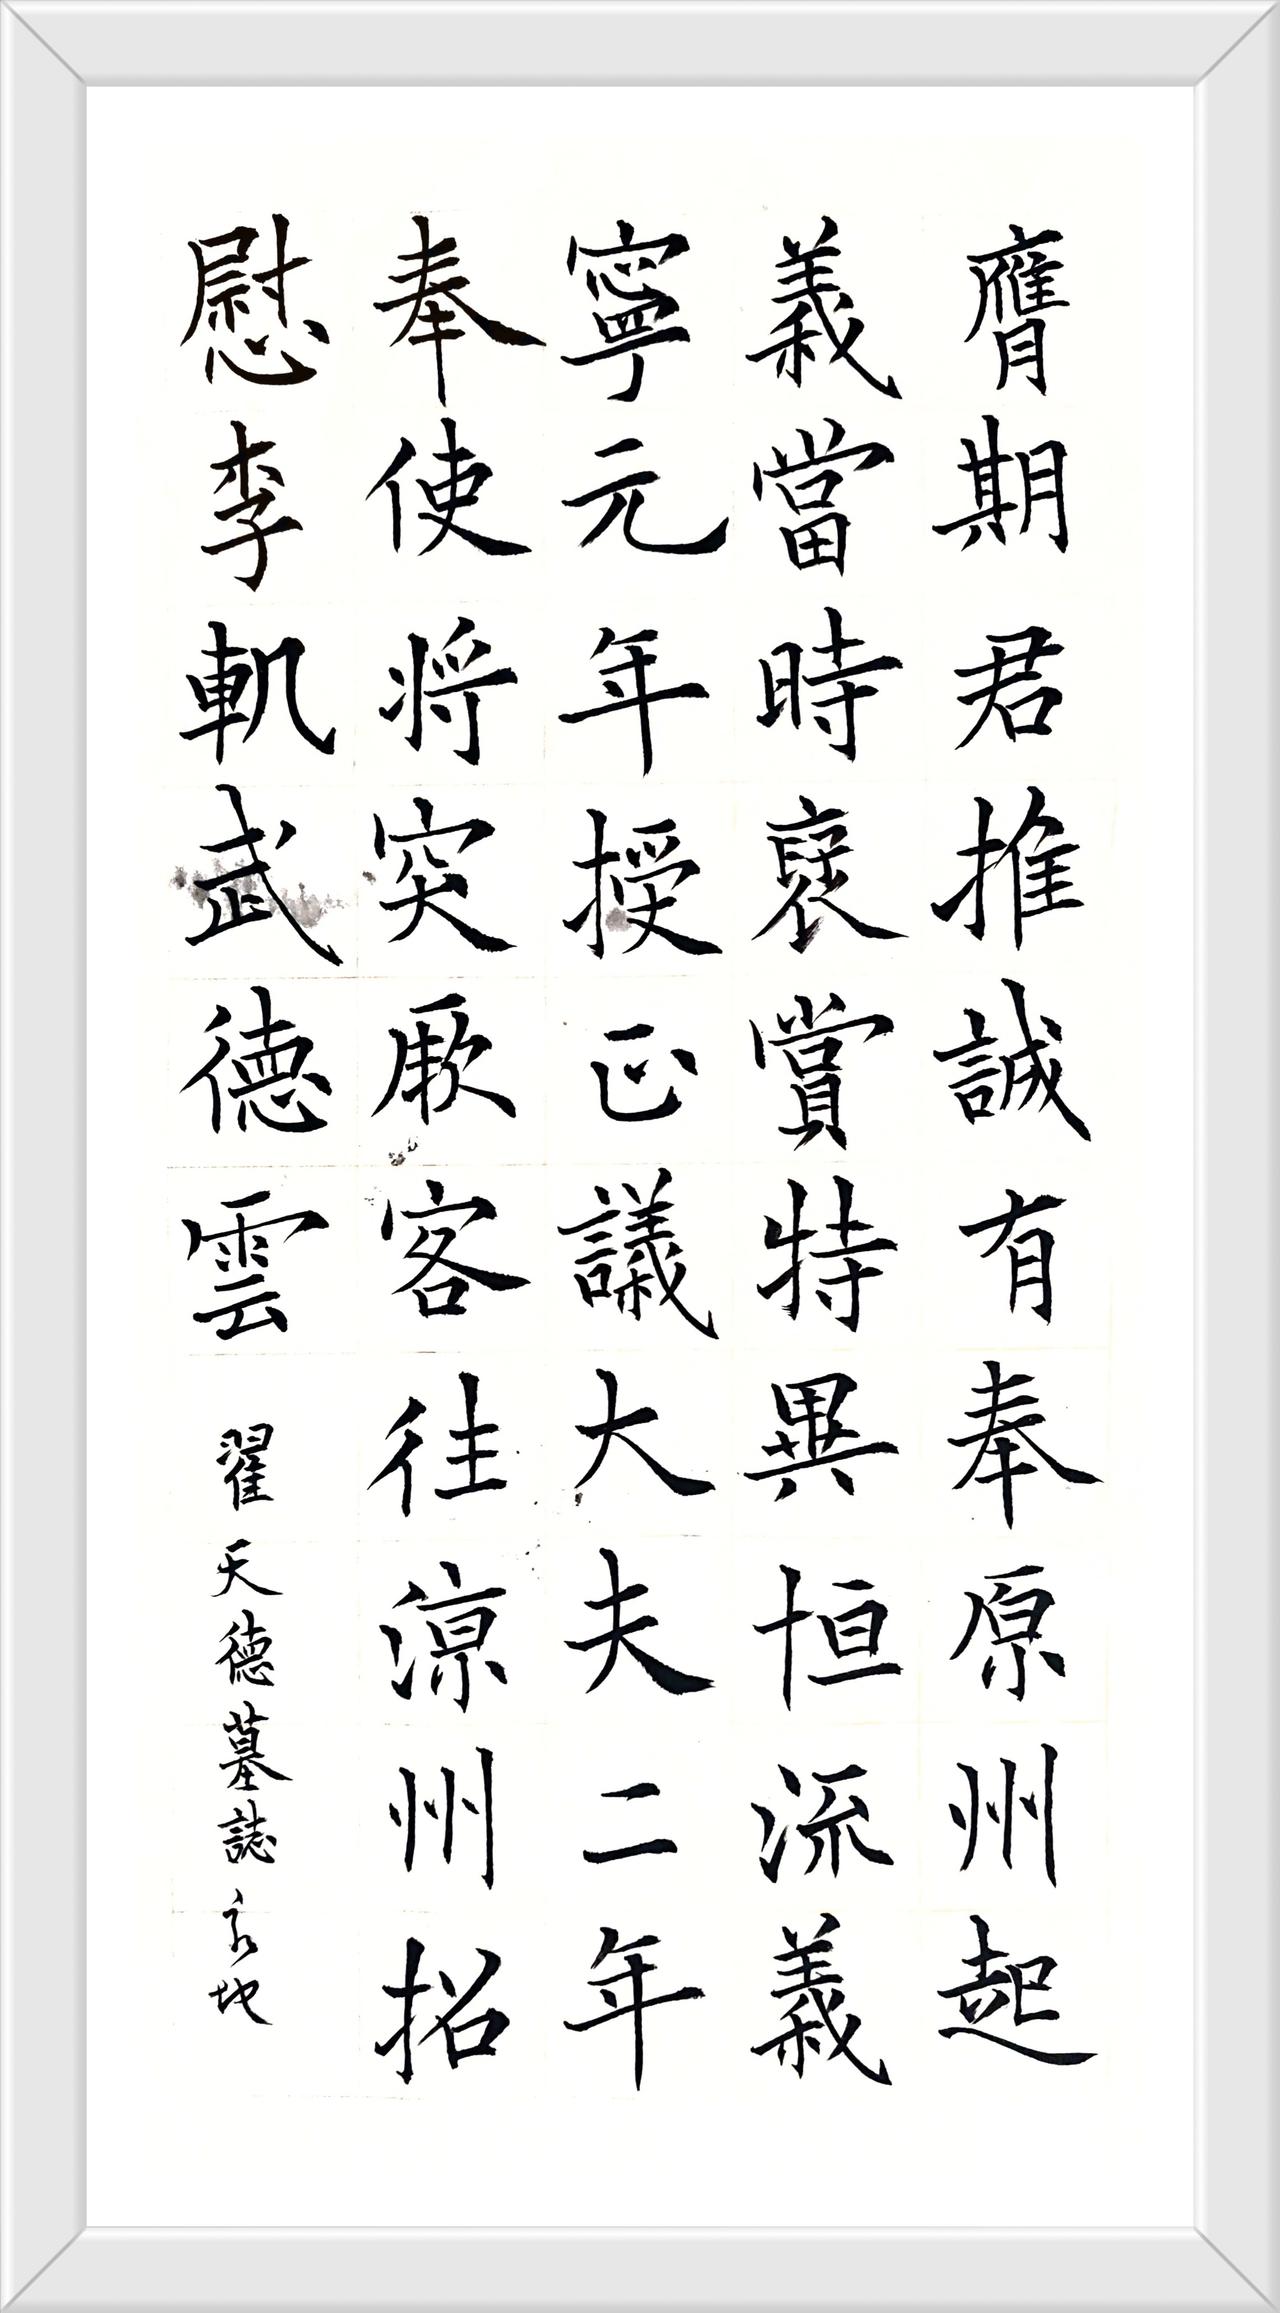 膺期君推誠有奉原州起
義當時襃賞特異恒流義
寧元年授正議大夫二年
奉使將突厥客往涼州招
慰李軌武德雲
翟天德墓誌